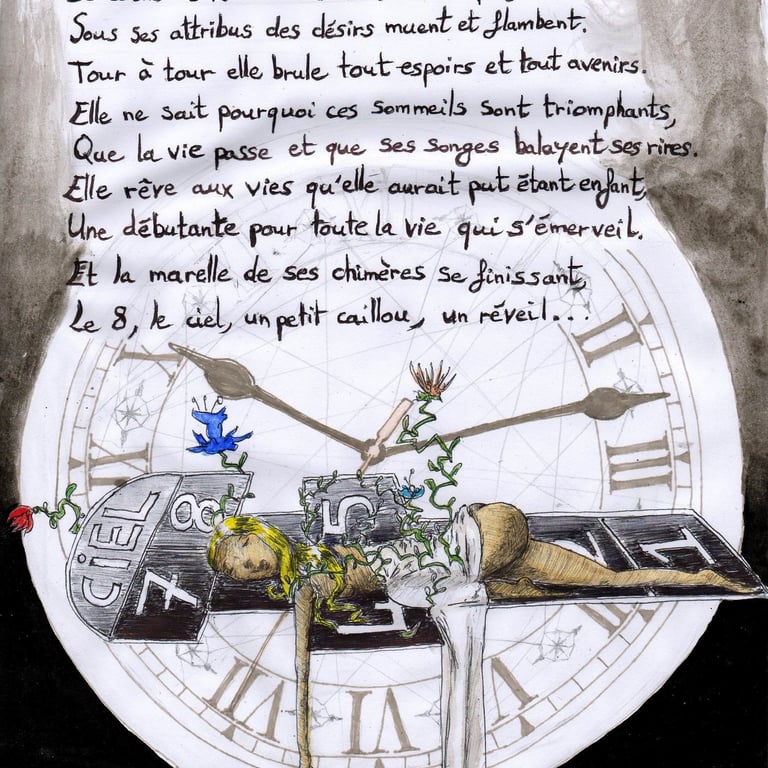 Sous ses attribus des désirs muent et flambent.
Tour à tour elle brule tout espoirs et tout avenirs.
Elle ne sait pourquoi ces sommeils sont triomphants,
Que la vie passe et que ses songes balayent ses rires.
Elle rêve aux vies qu'elle aurait put étant enfant,
Une débutante pour toute la vie qui s'émerveil.
Et la marelle de ses chimères se finissant,
Le 8, le ciel, un petit caillou, un réveil...
II
IX
III
CIEL
8
7
5
1
VII
VI
V